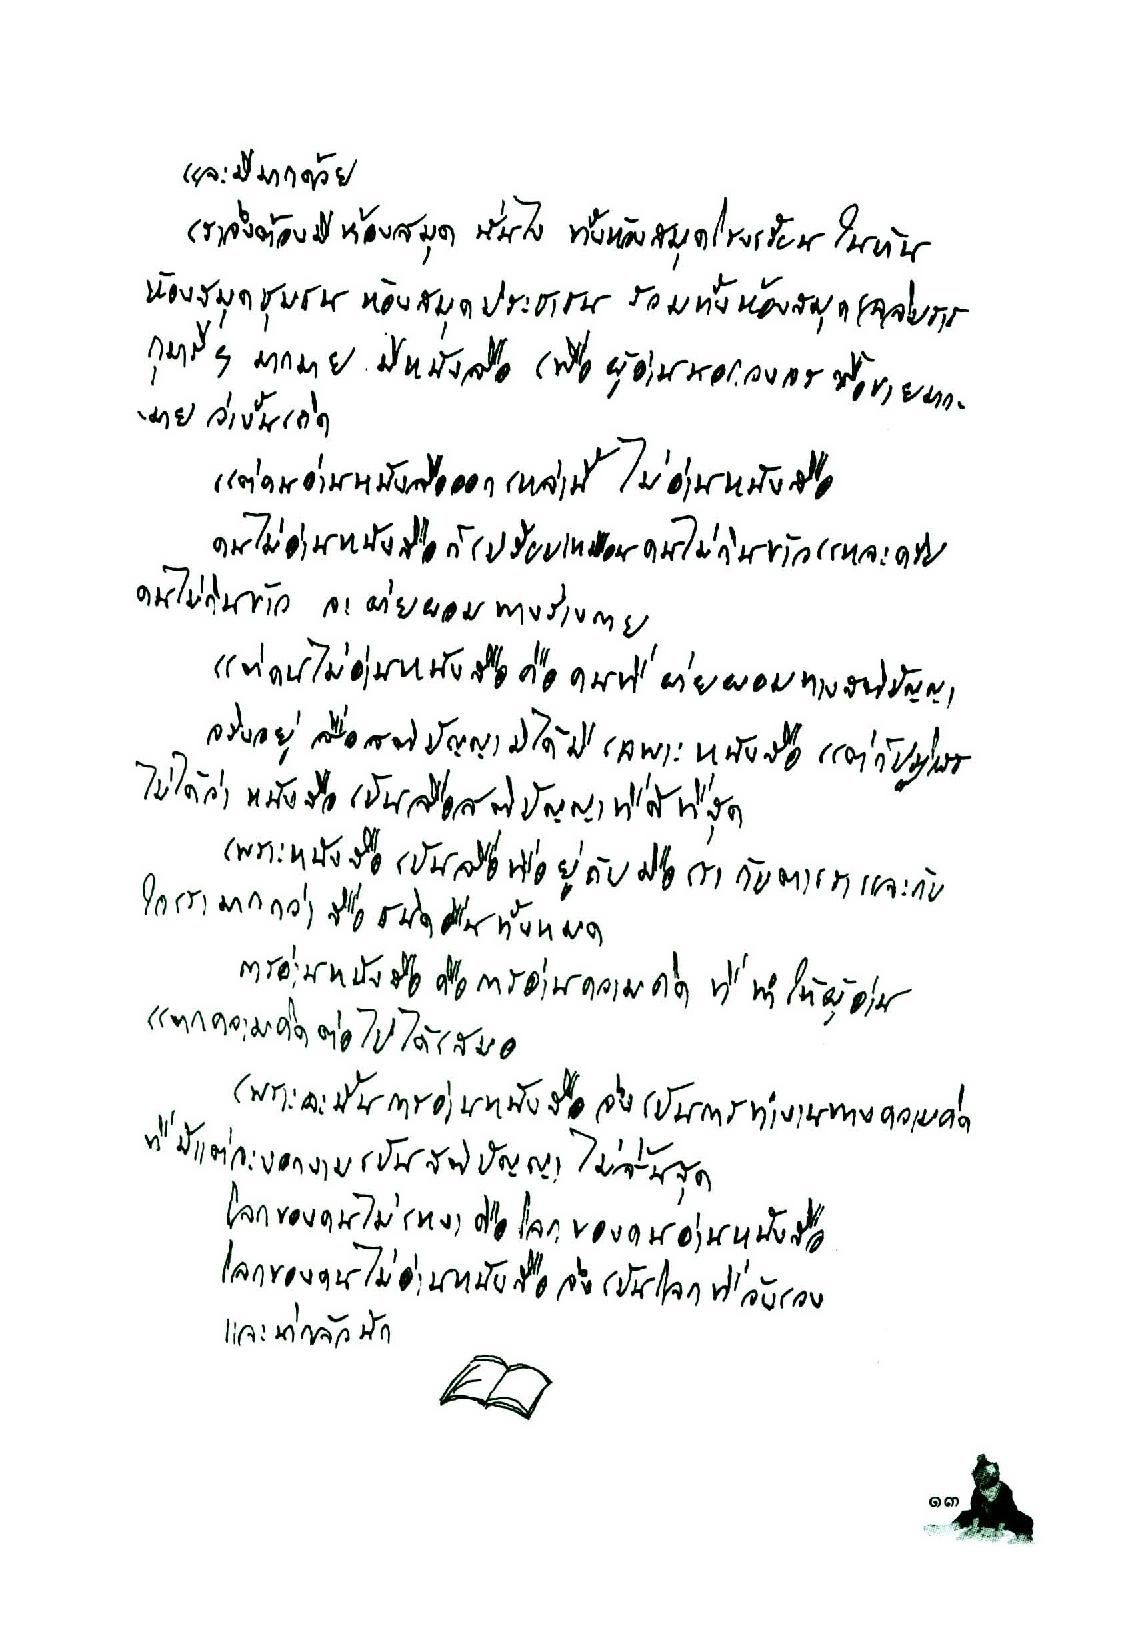 และมีมากด้วย
เราจึงต้องมีห้องสมุด นั่นไง ทั้งห้องสมุดโรงเรียน ในทัน
ห้องสมุดชุมชน ห้องสมุดประชาชน รวมทั้งห้องสมุดเฉลิมราช
กุมารีๆ มากมาย มีหนังสือ เพื่อผู้อ่านนอก ซื้อขายมาก-
-มาย ว่างั้นเถิด
แต่คนอ่านหนังสือออกเหล่านี้ ไม่อ่านหนังสือ
คนไม่อ่านหนังสือก็เปรียบเหมือนคนไม่กินข้าวแหละครับ
คนไม่กินข้าว จะผ่ายผอมทางร่างกาย
แต่คนไม่อ่านหนังสือ คือ คนที่ผ่ายผอมทางสติปัญญา
จริงอยู่ สื่อสติปัญญามิได้มีเฉพาะหนังสือ แต่ก็ปฏิเสธ
ไม่ได้ว่า หนังสือเป็นสื่อสติปัญญาที่ดีที่สุด
เพราะหนังสือเป็นสื่อที่อยู่กับมือเรา กับตาเราและกับ
ใจเรามากกว่า สื่อชนิดอื่นทั้งหมด
การอ่านหนังสือ คือการอ่านความคิด ที่ทำให้ผู้อ่าน
แตกความคิดต่อไปได้เสมอ
เพราะฉะนั้นการอ่านหนังสือ จึงเป็นการทำงานทางความคิด
ที่มีแต่จะงอกงามเป็นสติปัญญา ไม่สิ้นสุด
โลกของคนไม่เหงา คือ โลกของคนอ่านหนังสือ
โลกของคนไม่อ่านหนังสือ จึงเป็นโลกที่วังเวง
และน่ากลัวนัก
๑๓